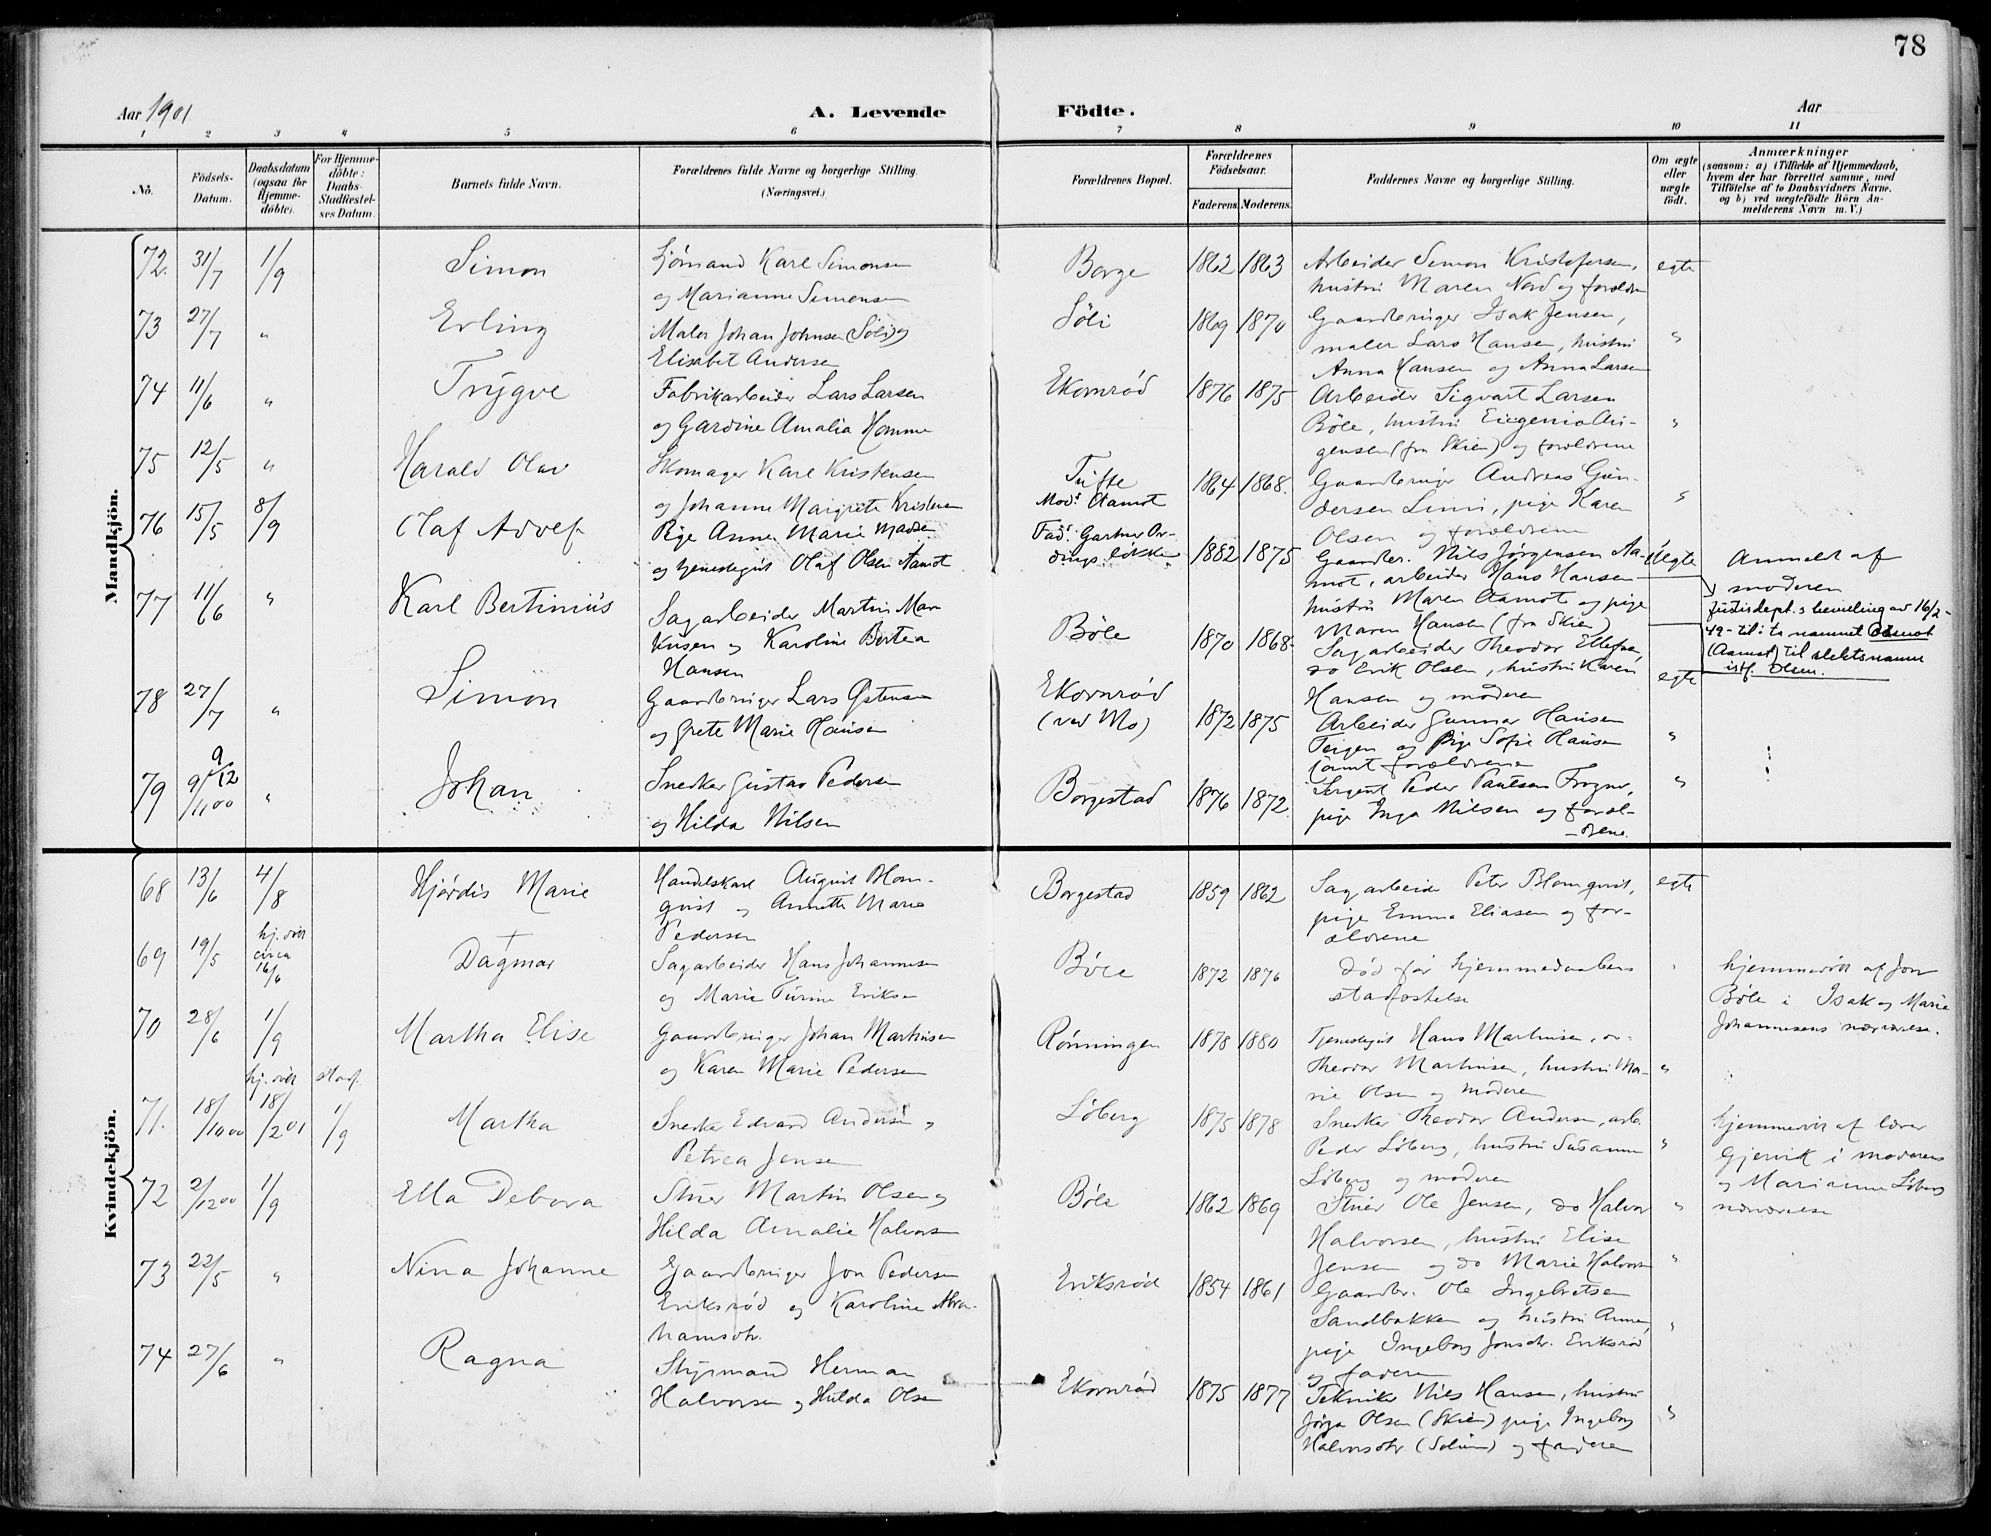 78
Aar 1901 A. Levende Födte. Aar
1 2 3 4 5 6 7 8 9 10 11
No.
Födsels-Datum.
Daabsdatum (ogsaa for Hjemme-döbte).
For Hjemme-döbte: Daabs-Stadfæstel-ses Datum.
Barnets fulde Navn.
Forældrenes fulde Navne og borgerlige Stilling.
(Næringsvei.)
Forældrenes Bopæl.
Forældrenes Födselsaar.
Faderens. Moderens.
Faddernes Navne og borgerlige Stilling.
Om ægte eller uægte födt.
Anmærkninger
(saasom: a) i Tilfælde af Hjemmedaab,
hvem der har forrettet samme, med
Tilföielse af to Daabsvidners Navne.
og b) ved uægtefödte Börn An-
melderens Navn m. V.)
Mandkjön.
72. 31/7 1/9 Simon
Sjömand Karl Simonsen
og Marianne Simonsen
Borge 1862 1863
Arbeider Simon Kristofersen,
hustru Maren Nord og forældr
egte
73 27/7 " Erling
Maler Johan Johnsen (Söli) og
Elisabet Andersen
Söli 1869 1870
Gaardbruger Isak Jensen,
maler Lars Hansen, hustru
Anna Hansen og Anna Larsen
"
74 11/6 " Trygve
Fabrikarbeider Lars Larsen
og Gardine Amalia Homme
Ekornröd 1876 1875
Arbeider Sigvart Larsen
Böle, hustru Eugenia Au-
gensen (fra Skien) og forældrene
"
75 12/5 " Harald Olav
Skomager Karl Kristensen
og Johanne Margrete Kristensen
Tufte 1864 1868.
Gaardbruger Andreas Gun-
dersen Limi, pige Karen
Olsen og forældrene
"
76 15/5 8/9 Olaf Adolf
Pige Anne Marie Madsen
og tjenestegut Olaf Olsen Aamot
Mods Aamot
Fads Gartner
løkken 1882 1875
Gaardbr. Nils Jørgensen Aa-
mot, arbeider Hans Hansen
hustru Maren Aamot og pige
Maren Hansen (fra Skien)
Uegte
Anmeldt af
moderen
Justisdept.s bevilling av 16/2-
49 - til: ta navnet Aamot
(Aamot) til slektsnavn
istf. Olsen.
77 11/6 " Karl Bertinius
Sagarbeider Martin Mar
kusen og Karoline Bertea
Hansen
Böle 1870 1868
Sagarbeider Theodor Ellefsen,
do Erik Olsen, hustru Karen
Hansen og moderen
egte
78 27/7 " Simon
Gaardbruger Lars Østensen
og Grete Marie Hansen
Ekornröd
(ved Mo) 1872 1875
Arbeider Gunnar Hansen
Teigen og pige Sofie Hansen
samt forældrene
"
79 9/12 9/11 00 " Johan
Snedker Gustav Pedersen
og Hilda Nilsen
Borgestad 1876 1872
Sergent Peder Paulsen Frogner,
pige Inga Nilsen og foræl-
drene.
"
Kvindekjön.
68 13/6 4/8 Hjördis Marie
Handelskarl August Blom-
qvist og Annette Marie
Pedersen
Borgestad 1859 1862
Sagarbeider Peter Blomqvist,
pige Emma Eliasen og for-
ældrene
egte
69 19/5 hj. döbt circa 16/6 Dagmar
Sagarbeider Hans Johannesen
og Marie Turine Eriksen
Böle 1872 1876
död för hjemmedaabens
stadfæstelse
"
hjemmedöbt af Jon
Böle i Isak og Marie
Johannesens nærværelse.
70 28/6 1/9 Martha Elise
Gaardbruger Johan Martinsen
og Karen Marie Pedersen
Rönningen 1878 1880
Tjenestegut Hans Martinsen, do
Theodor Martinsen, hustru Ma-
rie Olsen og moderen
"
71. 18/10 00 hj. döbt 18/2 01 stadf. 1/9 Martha
Snedker Edvard Andersen og
Petrea Jensen
Löberg 1875 1878
Snedker Theodor Andersen, arb.
Peder Löberg, hustru Susanne
Löberg og moderen
"
hjemmedöbt af lærer
Gjervik i moderens
og Marianne Löbergs
nærværelse
72 2/12 00 1/9 Ella Debora
Stuer Martin Olsen og
Hilda Amalie Halvorsen
Böle 1862 1869
Stuer Ole Jensen, do Halvor
Halvorsen, hustru Elise
Jensen og do Marie Halvorsen
"
73 22/5 " Nina Johanne
Gaardbruger Jon Pedersen
Eriksröd og Karoline Abra-
hamsdtr.
Eriksröd 1854 1861
Gaardbr. Ole Ingebretsen
Sandbakken og hustru Anne,
pige Ingeborg Jonsdtr. Eriksröd
og faderen
"
74 27/6 " Ragna
Styrmand Herman
Halvorsen og Hilda Olsen
Ekornröd 1875 1877
Tekniker Nils Hansen, hustru
Jörga Olsen (Skien) pige Ingeborg
Halvorsdtr (Solum) og faderen
"